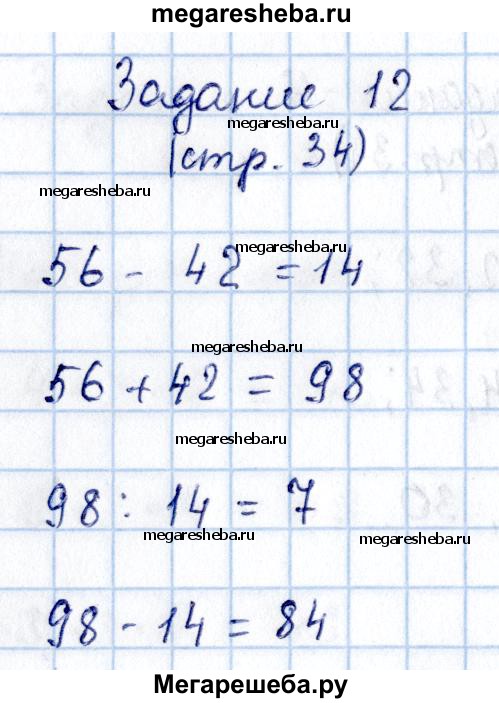 megaresheba.ru
Задание 12
megaresheba.ru
(стр. 34)
megaresheba.ru
megaresheba.ru
56 - 42 = 14
megaresheba.ru
56 + 42 = 98
megaresheba.ru
98 : 14 = 7
megaresheba.ru
megaresheba.ru
98 - 14 = 84
Мегарешеба.ру